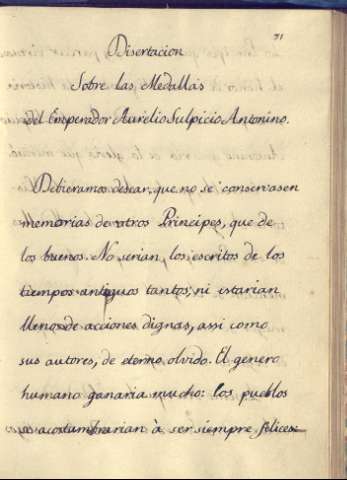 71
Disertacion
Sobre las Medallas
del Emperador Aurelio Sulpicio Antonino.
Debieramos desear, que no se conservasen
memorias de otros Principes, que de
los buenos. No serian, los escritos de los
tiempos antiguos tantos; ni estarian
llenos de acciones dignas, assi como
sus autores, de eterno olvido. El genero
humano ganaria mucho: los pueblos
se acostumbrarian à ser siempre felices: